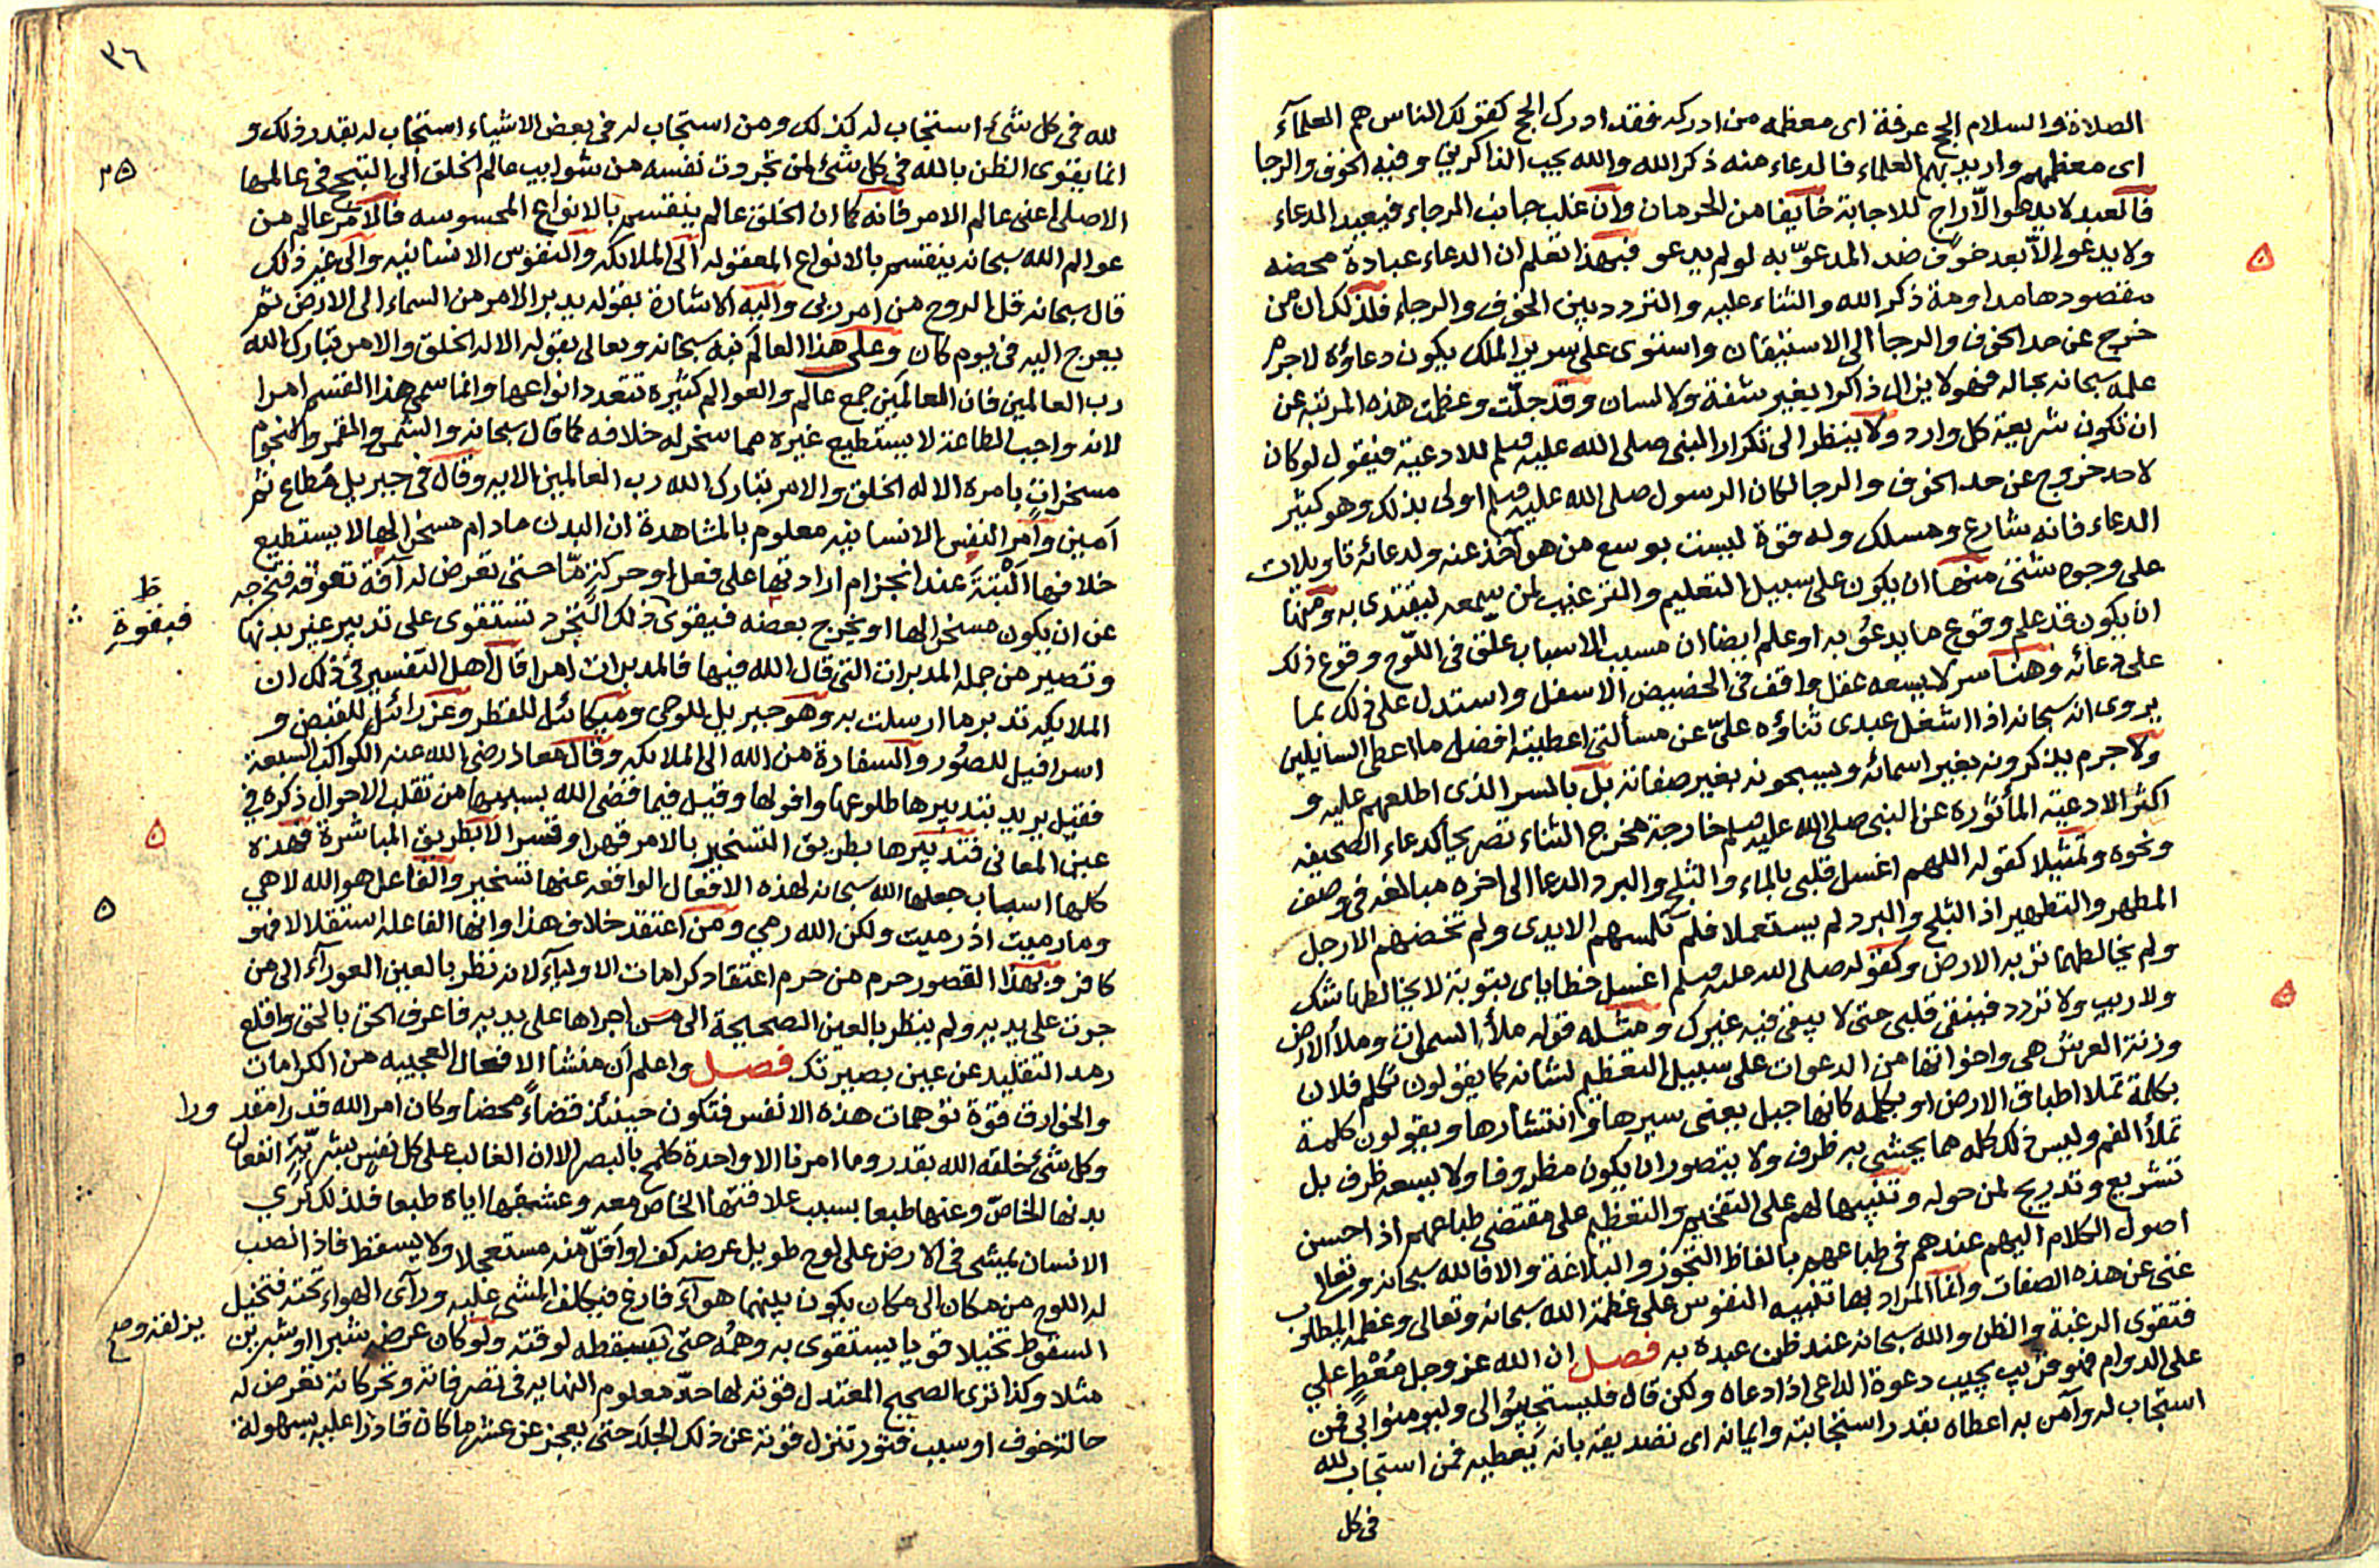 الصلاة والسلام الحج عرفة اى معظمه من ادركه فقد ادرك الحج كقولك الناس هم العلمآء
اى معظمهم واريد بهم العلماء فالدعاء منه ذكر الله والله يحب الذاكرين وفيه الخوف والرجا
فالعبد لا يدعوا الّا راج للاجابة خايفا من الحرمان وان غلب جانب الرجاء فيعيد الدعاء
ولا يدعو الّا بعد خوف ضد المدعوّ به لو لم يدعو فبهذا تعلم ان الدعاء عبادة محضه
مقصودها مداومة ذكر الله والثناء عليه والتردد بين الخوف والرجاء فلذلك ان من
خرج عن حد الخوف والرجا الى الاستيقان واستوى على سرير الملك يكون دعاؤه لا جرم
علمه سبحانه بحاله فهو لا يزال ذاكرا بغير شفة ولا لسان وقد جلّت وعظمت هذه المرتبة عن
ان تكون شريعة كل وارد ولا ينظر الى تكرار النبى صلى الله عليه وسلم للادعية فيقول لو كان
لاحد خروج عن حد الخوف والرجا لكان الرسول صلى الله عليه وسلم اولى بذلك وهو كثير
الدعاء فانه شارع ومسلك وله قوة ليست بوسع من هو آخذ عنه ولدعائه تاويلات
على وجوه شتى منها ان يكون على سبيل التعليم والترغيب لمن يسمعه ليقتدى به ومنها
ان يكون قد علم وقوع ما يدعُو به او علم ايضا ان مسبب الاسباب علق فى اللوح وقوع ذلك
على دعائه وهنا سر لا يسعه عقل واقف فى الحضيض الاسفل واستدل على ذلك بما
يروى انه سبحانه اذا اشغل عبدى ثناؤه علىّ عن مسألتى اعطيته افضل ما اعطى السايلين
ولا جرم يذكرونه بغير اسمائه ويسبحونه بغير صفاته بل بالسر الذى اطلعهم عليه و
اكثر الادعية المأثورة عن النبى صلى الله عليه وسلم خارجة مخرج الثناء تصريحا كدعاء الصحيفه
ونحوه وتمثيلا كقوله اللهم اغسل قلبى بالماء والثلج والبرد الدعا الى اخره مبالغه فى وصف
المطهر والتطهير اذ الثلج والبرد لم يستعملا فلم تلمسهم الايدى ولم تخضهم الارجل
ولم يخالطهما تربه الارض وكقوله صلى الله عليه وسلم اغسل خطاياى بتوبة لا يخالطها شك
ولا ريب ولا تردد فينقى قلبى حتى لا يبقى فيه غيرك ومثله قوله ملأ السموات وملأ الارض
وزنة العرش هى واخواتها من الدعوات على سبيل التعظيم لشانه كما يقولون تكلم فلان
بكلمة تملا اطباق الارض او بكلمه كانها جبل يعنى سيرها وانتشارها ويقولون كلمة
تملأ الفم وليس ذلك كله مما يحشى به ظرف ولا يتصور ان يكون مظروفا ولا يسعه ظرف بل
تشريع وتدريج لمن حوله وتنبيها لهم على التفخيم والتعظيم على مقتضى طباعهم اذ احسن
اصول الكلام اليهم عندهم فى طباعهم بالفاظ التجوز والبلاغة والا فالله سبحانه وتعالى
غنى عن هذه الصفات وانما المراد بها تنبيه النفوس على عظمة الله سبحانه وتعالى وعظم المطلوب
فتقوى الرغبة والظن والله سبحانه عند ظن عبده به فصل ان الله عز وجل مُعْطٍ على
على الدوام فهو قريب يجيب دعوة الداعى اذا دعاه ولكن قال فليستجيبُوا لى وليومنوا بى فمن
استجاب له وآمن به اعطاه بقدر استجابته وايمانه اى تصديقه بانه يعطيه فمن استجاب لله
فى كل
٣٦
لله فى كل شئ استجاب له كذلك ومن استجاب له فى بعض الاشياء استجاب له بقدر ذلك و
انما يقوى الظن بالله فى كل شئ لمن تجردت نفسه من شوايب عالم الخلق الى التبحح فى عالمها
٣٥
الاصلى اعنى عالم الامر فانه كما ان الخلق عالم ينقسم بالانواع المحسوسه فالامر عالم من
عوالم الله سبحانه ينقسم بالانواع المعقوله الى الملايكه والنفوس الانسانيه والى غير ذلك
قال سبحانه قل الروح من امر ربى واليه الاشارة بقوله يدبر الامر من السماء الى الارض ثم
يعرج اليه فى يوم كان وعلى هذا العالم نبه سبحانه وتعالى بقوله الا له الخلق والامر تبارك الله
رب العالمين فان العالمين جمع عالم والعوالم كثيرة تتعدد انواعها وانما سمى هذا القسم امرا
لانه واجب الطاعة لا يستطيع غيره مما سخر له خلافه كما قال سبحانه والشمس والقمر والنجوم
مسخراتٍ بامره الا له الخلق والامر تبارك الله رب العالمين الايه وقال فى جبريل مُطاع ثم
امين وامر النفس الانسانيه معلوم بالمشاهدة ان البدن مادام مسخرا لها لا يستطيع
خلافها البتةَ عند انجزام ارادتها على فعل او حركةٍ مّا حتى تعرض له آفة تعوقه فتخرجه
عن ان يكون مسخرا لها او تخرج بعضه فيقوى ذلك التجرد تستقوى على تدبير غير بدنها
ط
فبقوة
وتصير من جمله المدبرات التى قال الله فيها فالمدبرات امرا قال اهل التفسير فى ذلك ان
الملايكه تدبر ما ارسلت به وهو جبريل للوحى وميكائل للقطر وعزرائل للقبض و
اسرافيل للصُور والسفارة من الله الى الملايكه وقال معاذ رضى الله عنه الكواكب السبعة
فقيل يريد بتدبيرها طلوعها وافولها وقيل فيما قضى الله بسببها من تقلب الاحوال ذكره فى
عين المعانى فتدبيرها بطريق التسخير بالامر قهرا وقسرا لا بطريق المباشرة فهذه
كلها اسباب جعلها الله سبحانه لهذه الافعال الواقعه عنها تسخير والفاعل هو الله لا هى
وما رميت اذ رميت ولكن الله رمى ومن اعتقد خلاف هذا وانها الفاعله استقلالا فهو
كافر وبهذا القصور حرم من حرم اعتقاد كرامات الاوليآء لانه نظر بالعين العورآء الى من
جرت على يديه ولم ينظر بالعين الصحيحة الى من اجراها على يديه فاعرف الحق بالحق واقلع
رمد التقليد عن عين بصيرتك فصل واعلم ان منشا الافعال العجيبه من الكرامات
والخوارق قوة توهمات هذه الانفس فتكون حينئذ قضاءً محضا وكان امر الله قدرا مقد ورا
وكل شئ خلقه الله بقدر وما امرنا الا واحدة كلمح بالبصر الا ان الغالب على كل نفس بشريّةٍ انفعال
بدنها الخاصّ وعنها طبعا بسبب علاقتها الخاص معه وعشقها اياه طبعا فلذلك ترى
الانسان يمشى فى الارض على لوح طويل عرضه كف او اقلّ منه مستعجلا ولا يسقط فاذا نصب
له اللوح من مكان الى مكان يكون بينهما هوآء فارغ فيكلف المشى عليه ورآى الهواء تحته فتخيل
السقوط تخيلا قويا يستقوى به وهمُه حتى يسقطه لوقته ولو كان عرضه شبرا او شبرين
يزلقه
مثلا وكذا ترى الصحيح المعتدل قوته لها حدّ معلوم النهايه فى تصرفاته وتحركاته تعرض له
حالة خوف او سبب فتور تنزل قوته عن ذلك الحد حتى يعجز عن عشر ما كان قادرا عليه بسهولة